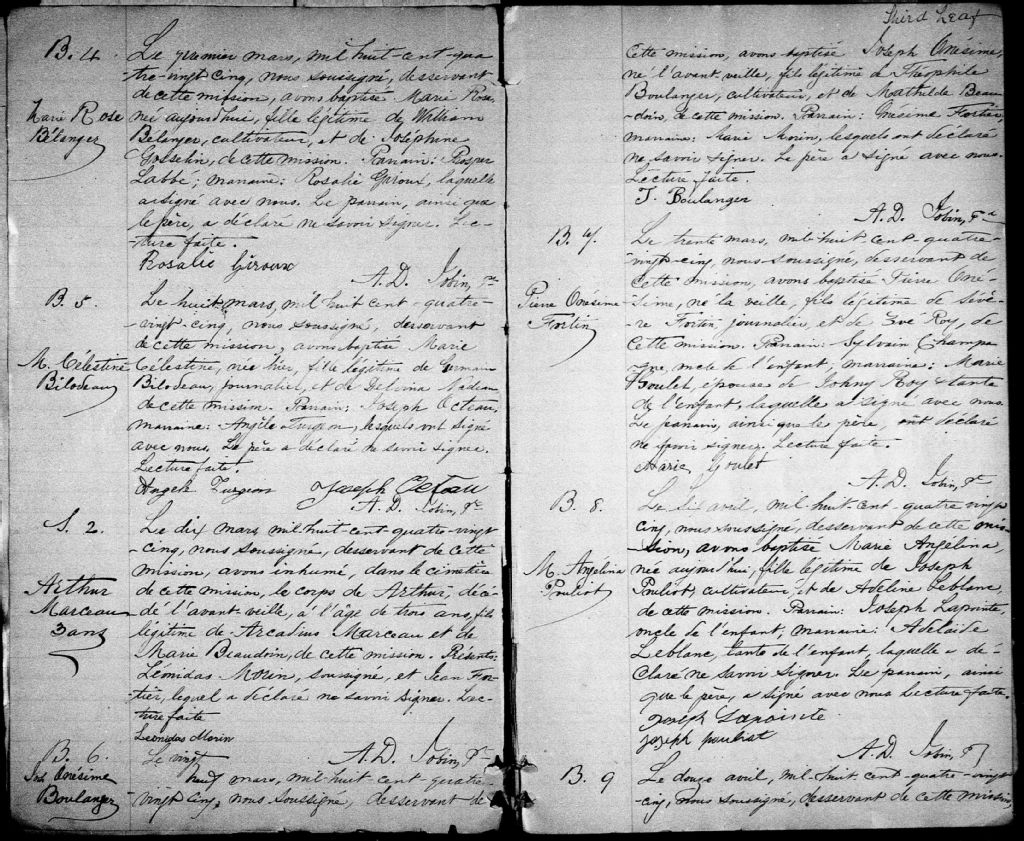 B. 4
Marie Rose
Bélanger
Le premier mars, mil huit-cent-qua-
-tre-vingt cinq, nous soussigné, desservant
de cette mission, avons baptisé Marie Rose,
née aujourd'hui, fille légitime de William
Bélanger, cultivateur, et de Joséphine
Gosselin, de cette mission. Parrain: Prosper
Labbé; marraine: Rosalie Giroux, laquelle
a signé avec nous. Le parrain, ainsi que
le père, a déclaré ne savoir signer. Lec-
-ture faite.
Rosalie Giroux
A. D. Jobin, Ptre
B. 5.
M. Célestine
Bilodeau
Le huit mars, mil huit cent-quatre-
-vingt-cinq, nous soussigné, desservant
de cette mission, avons baptisé Marie
Célestine, née hier, fille légitime de Germain
Bilodeau, journalier, et de Delvina Nadeau,
de cette mission. Parrain: Joseph Octeau,
marraine: Angèle Turgeon, lesquels ont signé
avec nous. Le père a déclaré ne savoir signer.
Lecture faite.
Angele Turgeon Joseph Octeau
A. D. Jobin, Ptre
S. 2.
Arthur
Marceau
3 ans
Le dix mars, mil-huit-cent-quatre-vingt
-cinq, nous soussigné, desservant de cette
mission, avons inhumé, dans le cimetière
de cette mission, le corps de Arthur, décé-
dé l'avant-veille, à l'âge de trois ans, fils
légitime de Arcadius Marceau et de
Marie Beaudoin, de cette mission. Présents:
Léonidas Morin, soussigné, et Jean For-
-tier, lequel a déclaré ne savoir signer. Lec-
-ture faite
Leonidas Morin
A. D. Jobin, Ptre
B. 6.
Jos. Onésime
Boulanger
Le vingt
neuf mars, mil-huit cent-quatre
vingt cinq, nous soussigné, desservant de
Third Leaf
cette mission, avons baptisé Joseph Onésime,
né l'avant veille, fils légitime de Théophile
Boulanger, cultivateur, et de Mathilde Beau-
-doin, de cette mission. Parrain: Onésime Fortier,
marraine: Marie Morin, lesquels ont déclaré
ne savoir signer. Le père a signé avec nous.
Lecture faite.
T. Boulanger
A. D. Jobin, Ptre
B. 7.
Pierre Onésime
Fortin
Le trente mars, mil-huit-cent-quatre-
vingt-cinq, nous-soussigné, desservant de
cette mission, avons baptisé Pierre Oné-
-sime, né la veille, fils légitime de Sévè-
-re Fortin, journalier, et de Zoé Roy, de
cette mission. Parrain: Sylvain Champa
gne, oncle de l'enfant, marraine: Marie
Goulet, épouse de Johny Roy & tante
de l'enfant, laquelle a signé avec nous.
Le parrain, ainsi que le père, ont déclaré
ne savoir signer. Lecture faite.
Marie Goulet
A. D. Jobin, Ptre
B. 8.
M. Angélina
Pouliot
Le six avril, mil-huit-cent-quatre vingt
cinq, nous soussigné, desservant de cette mis-
-sion, avons baptisé Marie Angélina,
née aujourd'hui, fille légitime de Joseph
Pouliot, cultivateur, et de Adeline Leblanc,
de cette mission. Parrain: Joseph Lapointe,
oncle de l'enfant, marraine: Adelaïde
Leblanc, tante de l'enfant, laquelle a dé-
-claré ne savoir signer. Le parrain, ainsi
que le père, a signé avec nous. Lecture faite.
joseph Lapointe
joseph pouliot
A. D. Jobin, Ptre
B. 9
Le douze avril, mil-huit cent-quatre-vingt
-cinq, nous soussigné, desservant de cette mission,